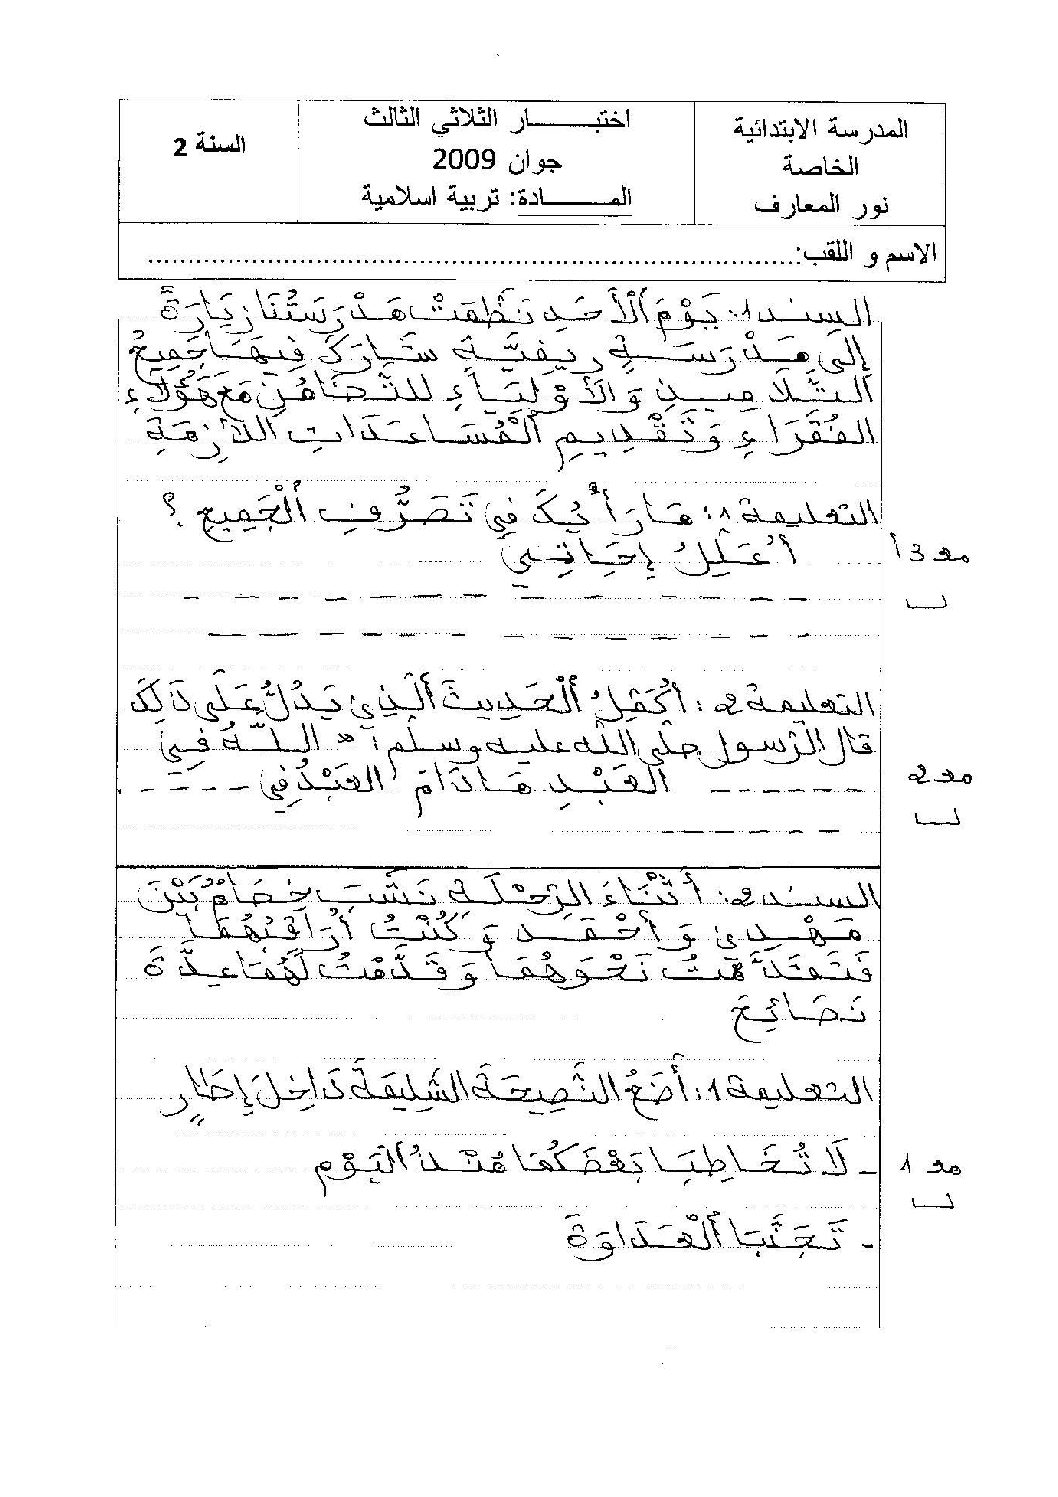 المدرسة الابتدائية
الخاصة
نور المعارف
اختبـــــــار الثلاثي الثالث
جوان 2009
المـــــــادة: تربية اسلامية
السنة 2
الاسم و اللقب:...............................................................................
السند 1: يَوْمَ ٱلْأَحَدِ نَظَّمَتْ مَدْرَسَتُنَا زِيَارَةً
إِلَى مَدْرَسَةٍ رِيفِيَّةٍ شَارَكَ فِيهَا جَمِيعُ
التَّلَامِيذِ وَالأَوْلِيَاءِ لِلتَّضَامُنِ مَعَ هَؤُلَاءِ
الفُقَرَاءِ وَتَقْدِيمِ ٱلْمُسَاعَدَاتِ اللَّازِمَةِ
التعليمة 1: مَا رَأْيُكَ فِي تَصَرُّفِ ٱلْجَمِيعِ ؟
أُعَلِّلُ إِجَابَتِي
مع 3 أ
التعليمة 2: أُكْمِلُ ٱلْحَدِيثَ ٱلَّذِي يَدُلُّ عَلَى ذَلِكَ
قال الرّسول صلى الله عليه وسلم: « اللَّهُ فِي
------ العَبْدِ مَا دَامَ العَبْدُ فِي -----
مع 2
السند 2: أَثْنَاءَ الرِّحْلَةِ نَشَبَ خِصَامٌ بَيْنَ
مَهْدِي وَأَحْمَد وَكُنْتُ أُرَاقِبُهُمَا
فَتَقَدَّمْتُ نَحْوَهُمَا وَقَدَّمْتُ لَهُمَا عِدَّةَ
نَصَائِحَ
التعليمة 1: أَضَعُ النَّصِيحَةَ السَّلِيمَةَ دَاخِلَ إِطَارٍ
- لَا تُخَاطِبَا بَعْضَكُمَا مُنْذُ اليَوْمِ
مع 1
- تَجَنَّبَا ٱلْعَدَاوَةَ